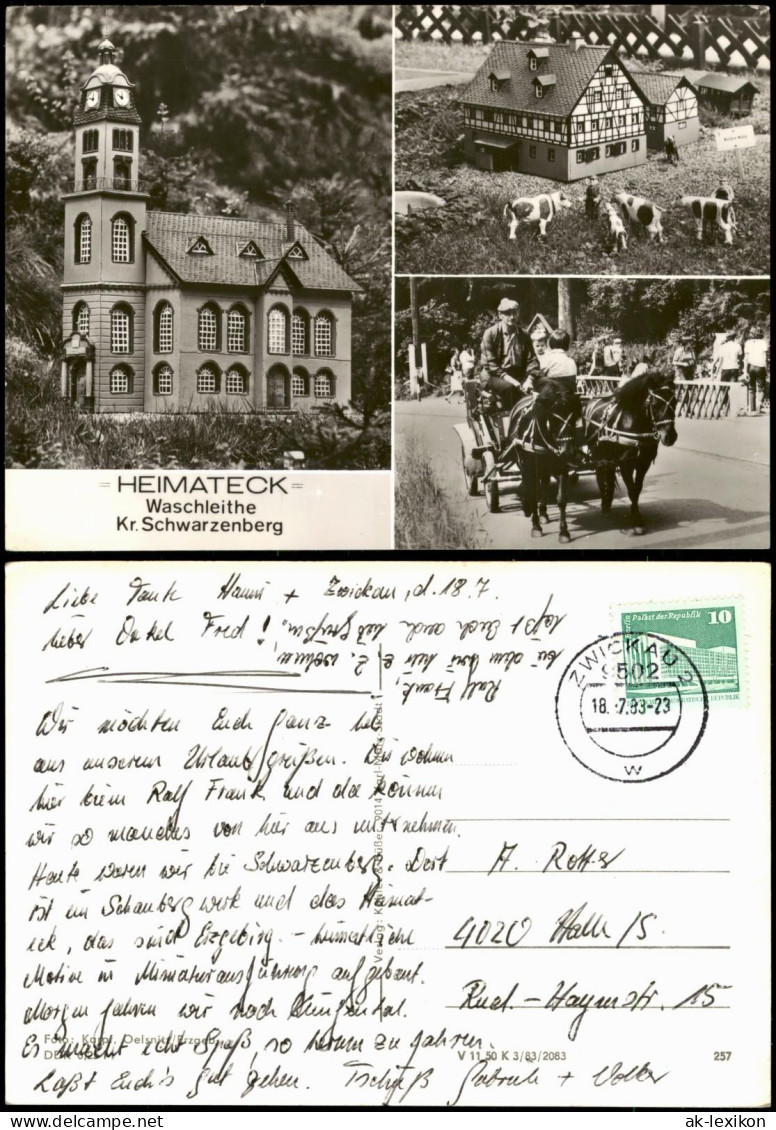 = HEIMATECK =
Waschleithe
Kr. Schwarzenberg
Liebe Tante Hanni + Zwickau, d. 18.7.
lieber Onkel Fred!
Ralf Frank,
läßt Euch auch
Wir möchten Euch ganz
aus unserem Urlaub grüßen. Wir wohnen
hier beim Ralf Frank und da können
wir so manches von hier aus unternehmen.
Heute waren wir bei Schwarzenberg. Dort
ist ein Schaubergwerk und das Heimat-
eck, das sind Erzgebirg.-heimatliche
Motive in Miniaturausführung aufgebaut.
Morgen fahren wir nach Klingenthal.
Es macht echt Spaß, so herum zu fahren.
Laßt Euch's gut gehen. Tschüß Gabriele + Volker
Berlin Palast der Republik 10
ZWICKAU 2
9502
18.-7.83-23
w
A. Rotter
4020 Halle/S.
Rud.-Haymstr. 15
V 11 50 K 3/83/2083
257
ak-lexikon